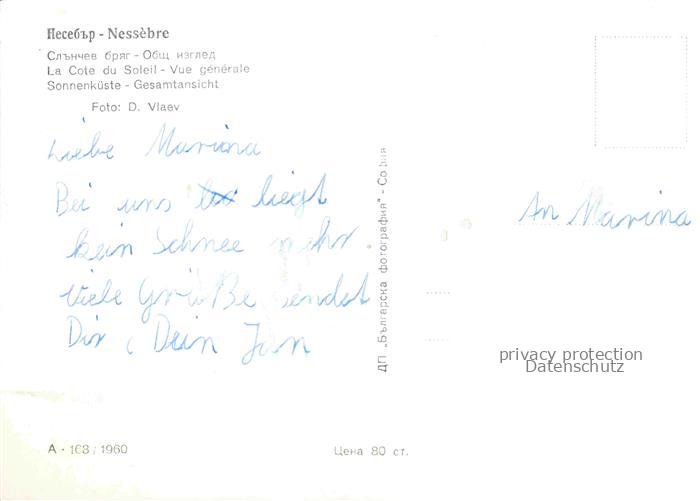 Несебър - Nessèbre
Слънчев бряг - Общ изглед
La Cote du Soleil - Vue générale
Sonnenküste - Gesamtansicht
Foto: D. Vlaev
Liebe Marina
Bei uns liegt
kein Schnee mehr
viele Grüße sendet
Dir, Dein Jan
ДП „Българска фотография" - София
An Marina
privacy protection
Datenschutz
А - 163 / 1960
Цена 80 ст.